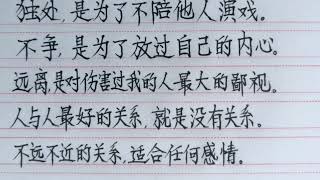 独处,是为了不陪他人演戏。
不争,是为了放过自己的内心。
远离,是对伤害过我的人最大的鄙视。
人与人最好的关系,就是没有关系。
不远不近的关系,适合任何感情。